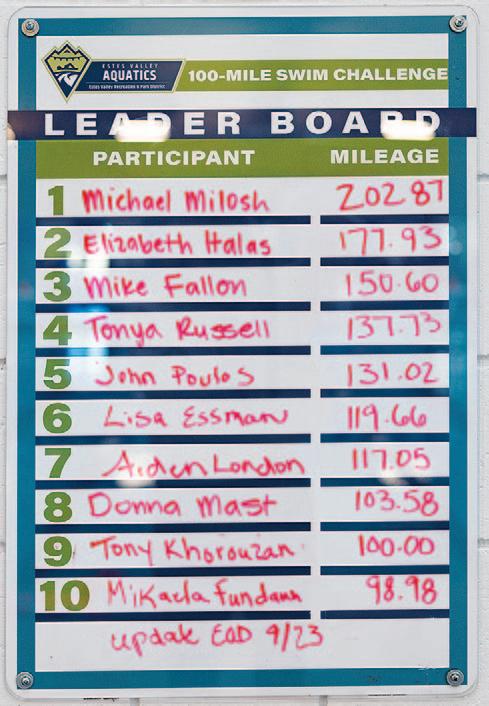 ESTES VALLEY
AQUATICS
Estes Valley Recreation & Park District
100-MILE SWIM CHALLENGE
LEADER BOARD
PARTICIPANT MILEAGE
1 Michael Milosh 202.87
2 Elizabeth Halas 177.93
3 Mike Fallon 150.60
4 Tonya Russell 137.73
5 John Poulos 131.02
6 Lisa Essman 119.66
7 Aiden London 117.05
8 Donna Mast 103.58
9 Tony Khorouzan 100.00
10 Mikaela 98.98
update EOD 9/23